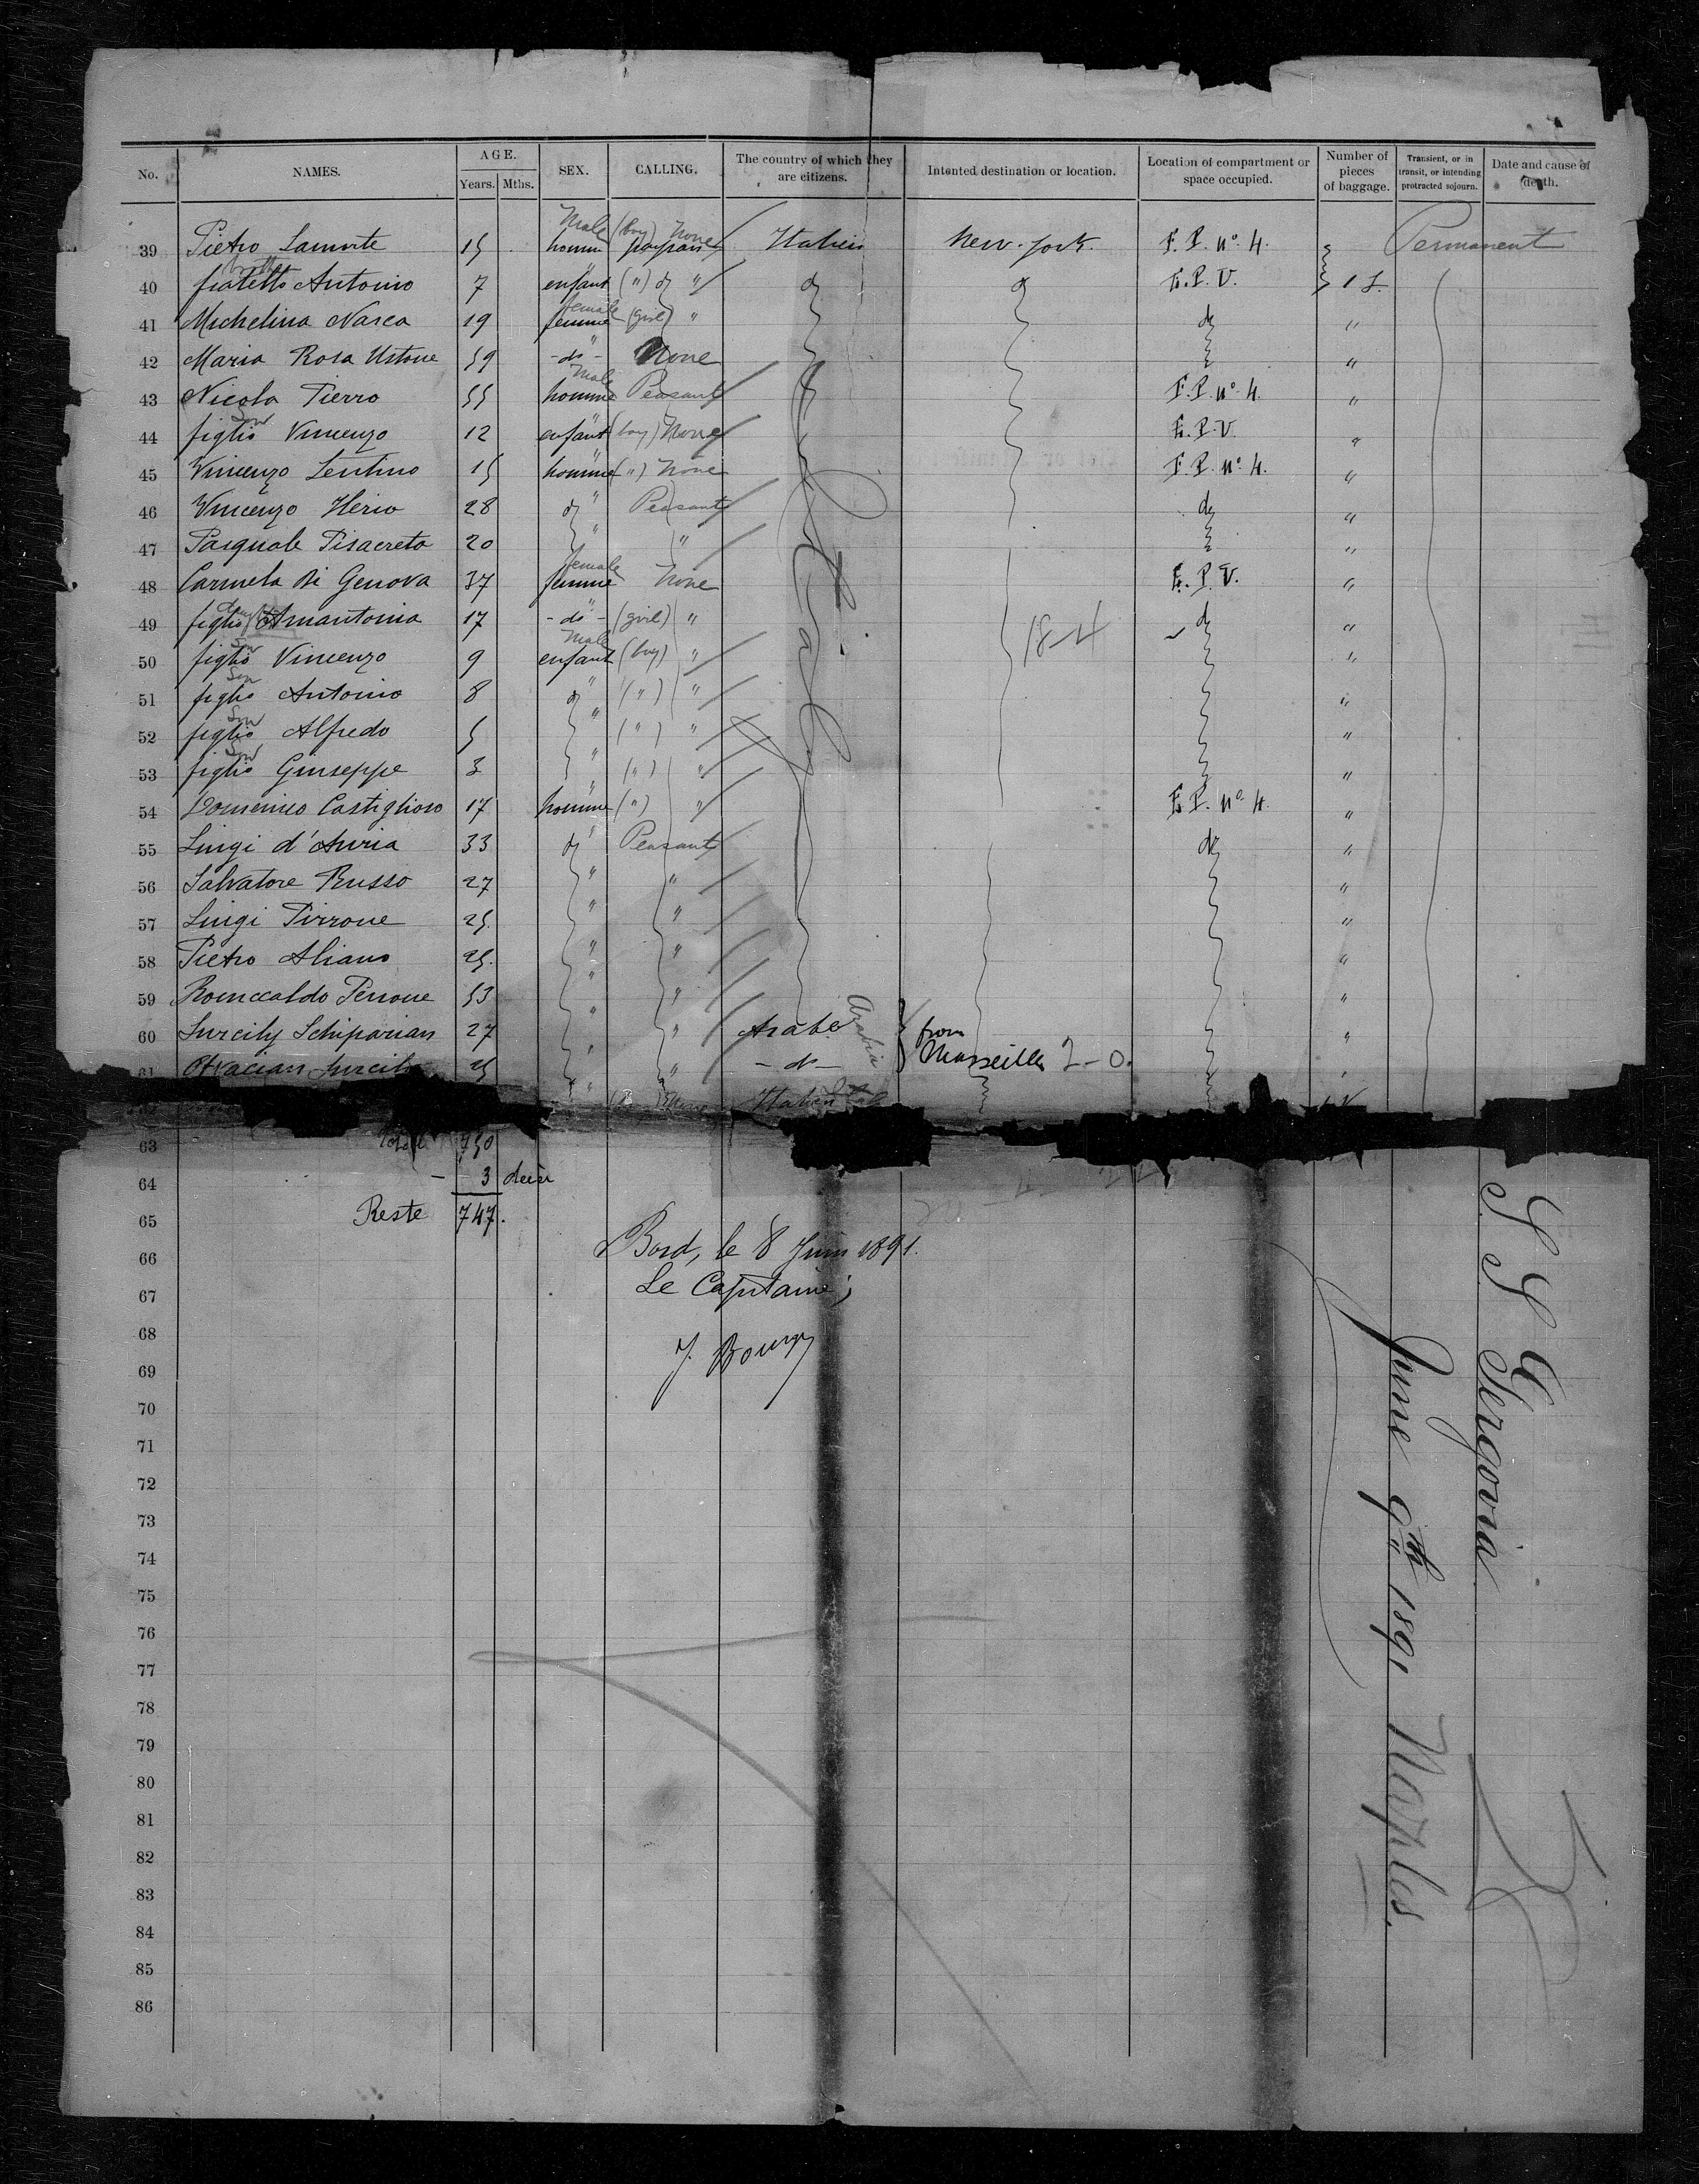 No. NAMES. AGE. Years. Mths. SEX. CALLING. The country of which they are citizens. Intented destination or location. Location of compartment or space occupied. Number of pieces of baggage. Transient, or in transit, or intending protracted sojourn. Date and cause of death.
39 Pietro Lamorte 15 Male homme (boy) None paysan Italien New-York. E. P. nº 4. Permanent
40 fratello Antonio 7 enfant (") do " do do E. P. V. 1
41 Michelina Nasca 19 female femme (girl) " do "
42 Maria Rosa 59 - do - None "
43 Nicola Pierro 55 Male homme Peasant E. P. nº 4. "
44 figlio Son Vincenzo 12 enfant (boy) None E. P. V. "
45 Vincenzo Lentino 15 homme (") None E. P. nº 4. "
46 Vincenzo 28 do " Peasant do "
47 Pasquale Pisacreta 20 " " "
48 Carmela Di Genova 37 female femme None E. P. V. "
49 figlia Amantonia 17 - do - (girl) " 18-4 do "
50 figlio Son Vincenzo 9 Male enfant (boy) " "
51 figlio Son Antonio 8 do " (") " "
52 figlio Son Alfredo 5 " (") " "
53 figlio Son Giuseppe 3 " (") " "
54 Domenico Castiglioso 17 homme (") " E. P. nº 4. "
55 Luigi d'Auria 33 do " Peasant do "
56 Salvatore Russo 27 " " "
57 Luigi Pirrone 25. " " "
58 Pietro Aliano 25. " " "
59 Perrone 53 " " "
60 Surcily Schiparian 27 " " Arabe Arabia from "
61 Surcily 25 " " - do - Marseille 2-0. "
62 None Italien
63 Total 750
64 - 3
65 Reste 747.
66 Bord, le 8 Juin 1891.
67 Le Capitaine;
68 J.
69
70
71
72
73
74
75
76
77
78
79
80
81
82
83
84
85
86
S. S. Gergovia
June 9th 1891
Naples.